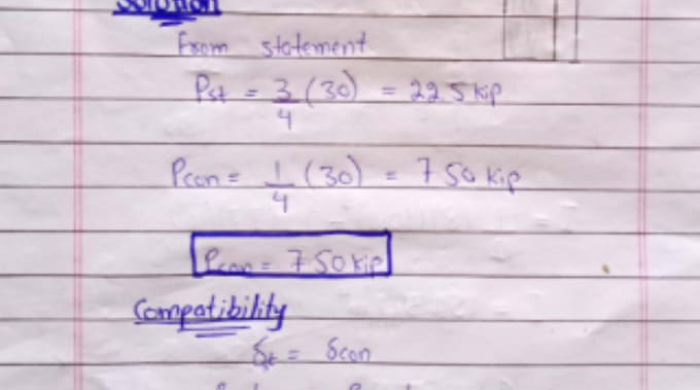 Solution
From statement
Pst = 3/4 (30) = 22.5 kip
Pcon = 1/4 (30) = 7.50 kip
Pcon = 7.50 kip
Compatibility
δst = δcon